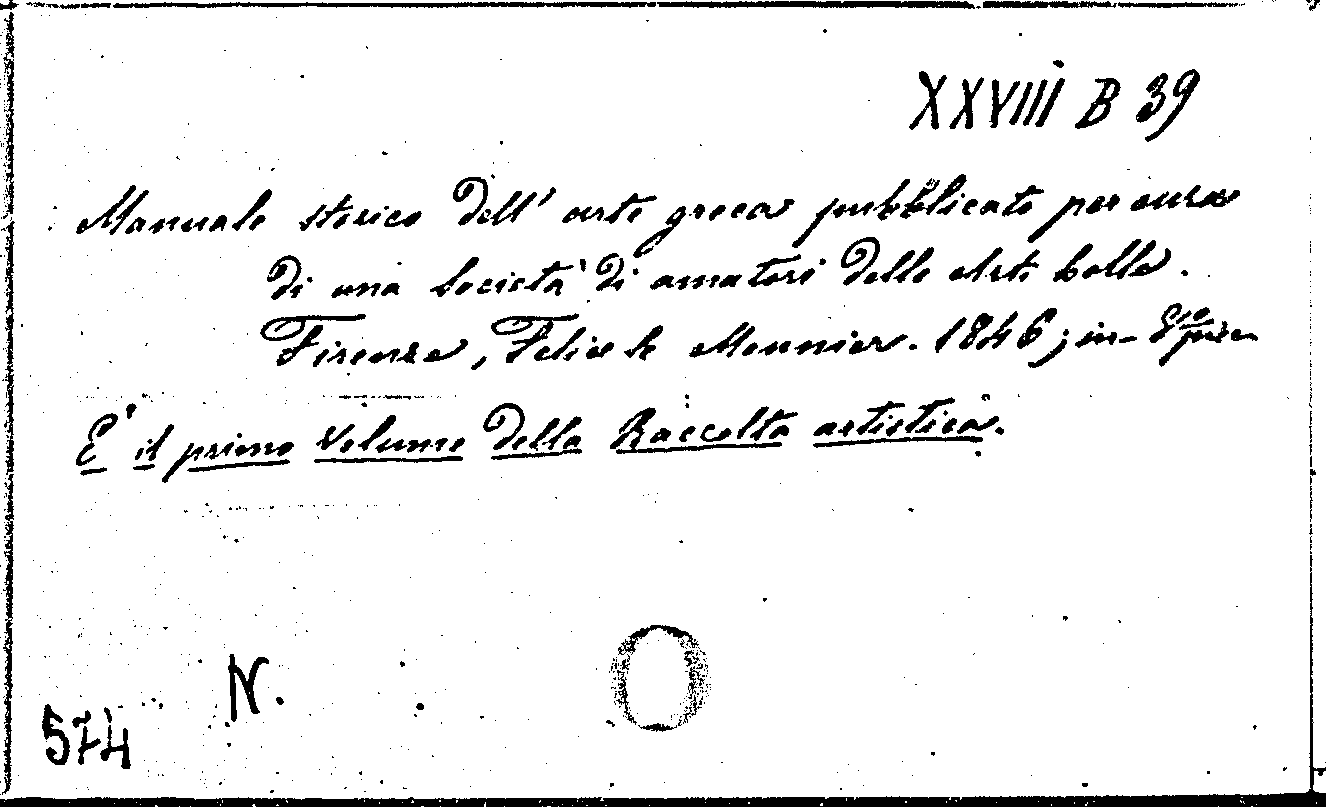 XXVIII B 39
Manuale storico dell' arte greca pubblicato per cura
di una Società di amatori delle Arti belle.
Firenze, Felice le Monnier. 1846; in- 8º pic.
E' il primo volume della Raccolta artistica.
N.
574